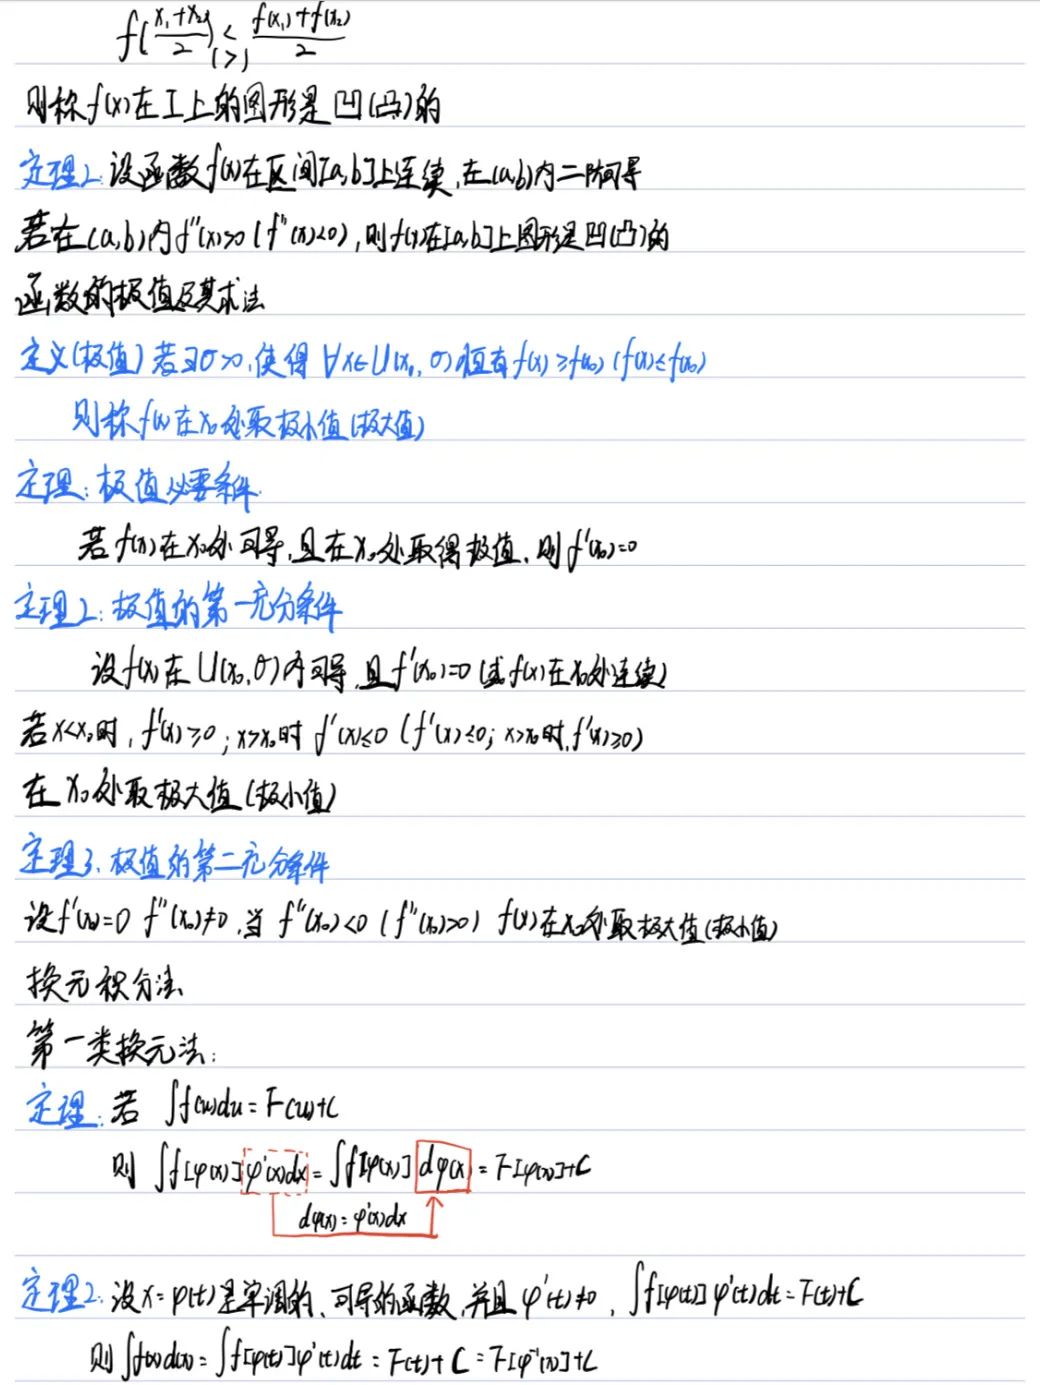 f(x₁+x₂/2) <(>) f(x₁)+f(x₂)/2
则称f(x)在I上的图形是凹(凸)的
定理2 设函数f(x)在区间[a,b]上连续,在(a,b)内二阶可导
若在(a,b)内f''(x)>0(f''(x)<0),则f(x)在[a,b]上图形是凹(凸)的
函数的极值及其求法
定义(极值)若∃σ>0,使得∀x∈U(x₀,σ)恒有f(x)≥f(x₀)(f(x)≤f(x₀)
则称f(x)在x₀处取极小值(极大值)
定理:极值必要条件
若f(x)在x₀处可导,且在x₀处取得极值,则f'(x₀)=0
定理2:极值的第一充分条件
设f(x)在U(x₀,σ)内可导,且f'(x₀)=0(或f(x)在x₀处连续)
若x<x₀时,f'(x)≥0;x>x₀时f'(x)≤0(f'(x)≤0;x>x₀时,f'(x)≥0)
在x₀处取极大值(极小值)
定理3.极值的第二充分条件
设f'(x₀)=0 f''(x₀)≠0,当f''(x₀)<0(f''(x₀)>0) f(x)在x₀处取极大值(极小值)
换元积分法
第一类换元法:
定理:若 ∫f(u)du=F(u)+C
则 ∫f[φ(x)]φ'(x)dx=∫f[φ(x)]dφ(x)=F[φ(x)]+C
dφ(x)=φ'(x)dx
定理2:设x=φ(t)是单调的、可导的函数,并且φ'(t)≠0,∫f[φ(t)]φ'(t)dt=F(t)+C
则∫f(x)d(x)=∫f[φ(t)]φ'(t)dt=F(t)+C=F[φ⁻¹(x)]+C